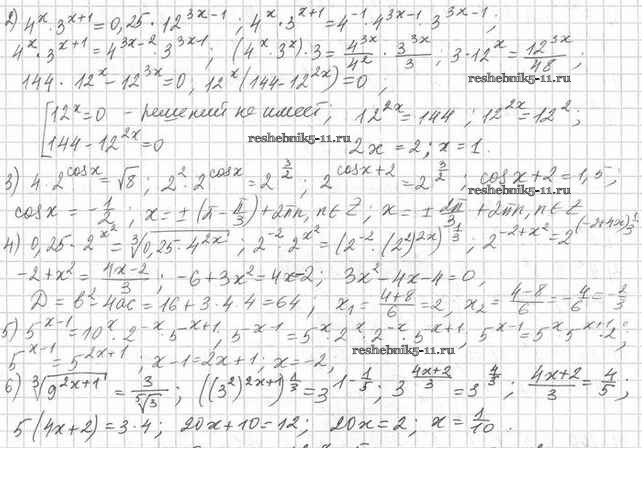 2) 4^x · 3^(x+1) = 0,25 · 12^(3x-1) ; 4^x · 3^(x+1) = 4^(-1) · 4^(3x-1) · 3^(3x-1) ;
4^x · 3^(x+1) = 4^(3x-2) · 3^(3x-1) ; (4^x · 3^x) · 3 = 4^(3x)/4^2 · 3^(3x)/3 ; 3 · 12^x = 12^(3x)/48 ;
reshebnik5-11.ru
144 · 12^x - 12^(3x) = 0, 12^x (144 - 12^(2x)) = 0 ;
[12^x = 0 - решений не имеет, 12^(2x) = 144 ; 12^(2x) = 12^2 ;
reshebnik5-11.ru
[144 - 12^(2x) = 0 2x = 2 ; x = 1.
3) 4 · 2^(cosx) = √8 ; 2^2 · 2^(cosx) = 2^(3/2) ; 2^(cosx+2) = 2^(3/2) ; cosx + 2 = 1,5 ;
reshebnik5-11.ru
cosx = -1/2 ; x = ±(π - π/3) + 2πn, n∈Z ; x = ± 2π/3 + 2πn, n∈Z
4) 0,25 · 2^(x^2) = ∛(0,25 · 4^(2x)) ; 2^(-2) · 2^(x^2) = (2^(-2) · (2^2)^(2x))^(1/3) ; 2^(-2+x^2) = 2^((-2+4x)1/3) ;
-2 + x^2 = (4x-2)/3 ; -6 + 3x^2 = 4x - 2 ; 3x^2 - 4x - 4 = 0,
D = b^2 - 4ac = 16 + 3 · 4 · 4 = 64 ; x₁ = (4+8)/6 = 2, x₂ = (4-8)/6 = -4/6 = -2/3
5) 5^(x-1) = 10^x · 2^(-x) · 5^(x+1), 5^(x-1) = 5^x · 2^x · 2^(-x) · 5^(x+1), 5^(x-1) = 5^x 5^(x+1) · 2^0 ;
reshebnik5-11.ru
5^(x-1) = 5^(2x+1) ; x - 1 = 2x + 1 ; x = -2,
6) ∛(9^(2x+1)) = 3/⁵√3 ; ((3^2)^(2x+1))^(1/3) = 3^(1-1/5) ; 3^((4x+2)/3) = 3^(4/5) ; (4x+2)/3 = 4/5 ;
5(4x+2) = 3 · 4 ; 20x + 10 = 12 ; 20x = 2 ; x = 1/10 .
reshebnik5-11.ru